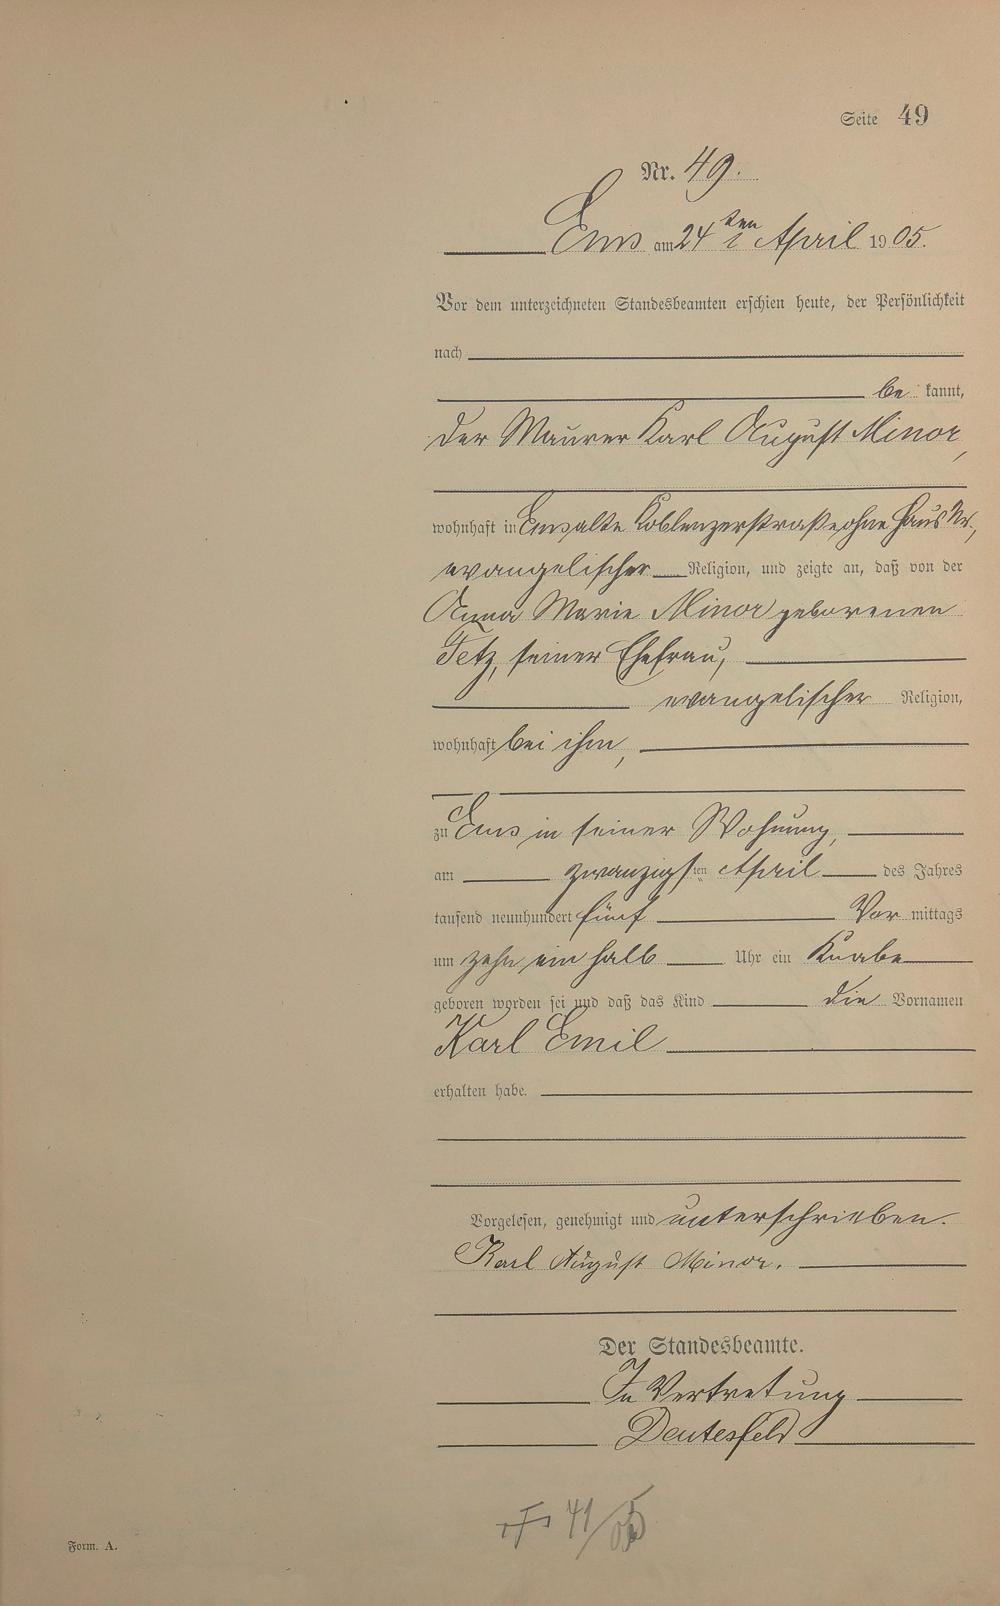 Seite 49
Nr. 49.
Ems am 24ten April 1905.
Vor dem unterzeichneten Standesbeamten erschien heute, der Persönlichkeit
nach
be kannt,
der Maurer Karl August Minor,
wohnhaft in Ems alte Koblenzerstraße ohne Haus Nr.,
evangelischer Religion, und zeigte an, daß von der
Anna Marie Minor geborenen
Fetz, seiner Ehefrau,
evangelischer Religion,
wohnhaft bei ihm,
zu Ems in seiner Wohnung,
am zwanzigsten April des Jahres
tausend neunhundert fünf Vor mittags
um zehn ein halb Uhr ein Knabe
geboren worden sei und daß das Kind die Vornamen
Karl Emil
erhalten habe.
Vorgelesen, genehmigt und unterschrieben.
Karl August Minor.
Der Standesbeamte.
In Vertretung
Deutesfeld
41/05
Form. A.